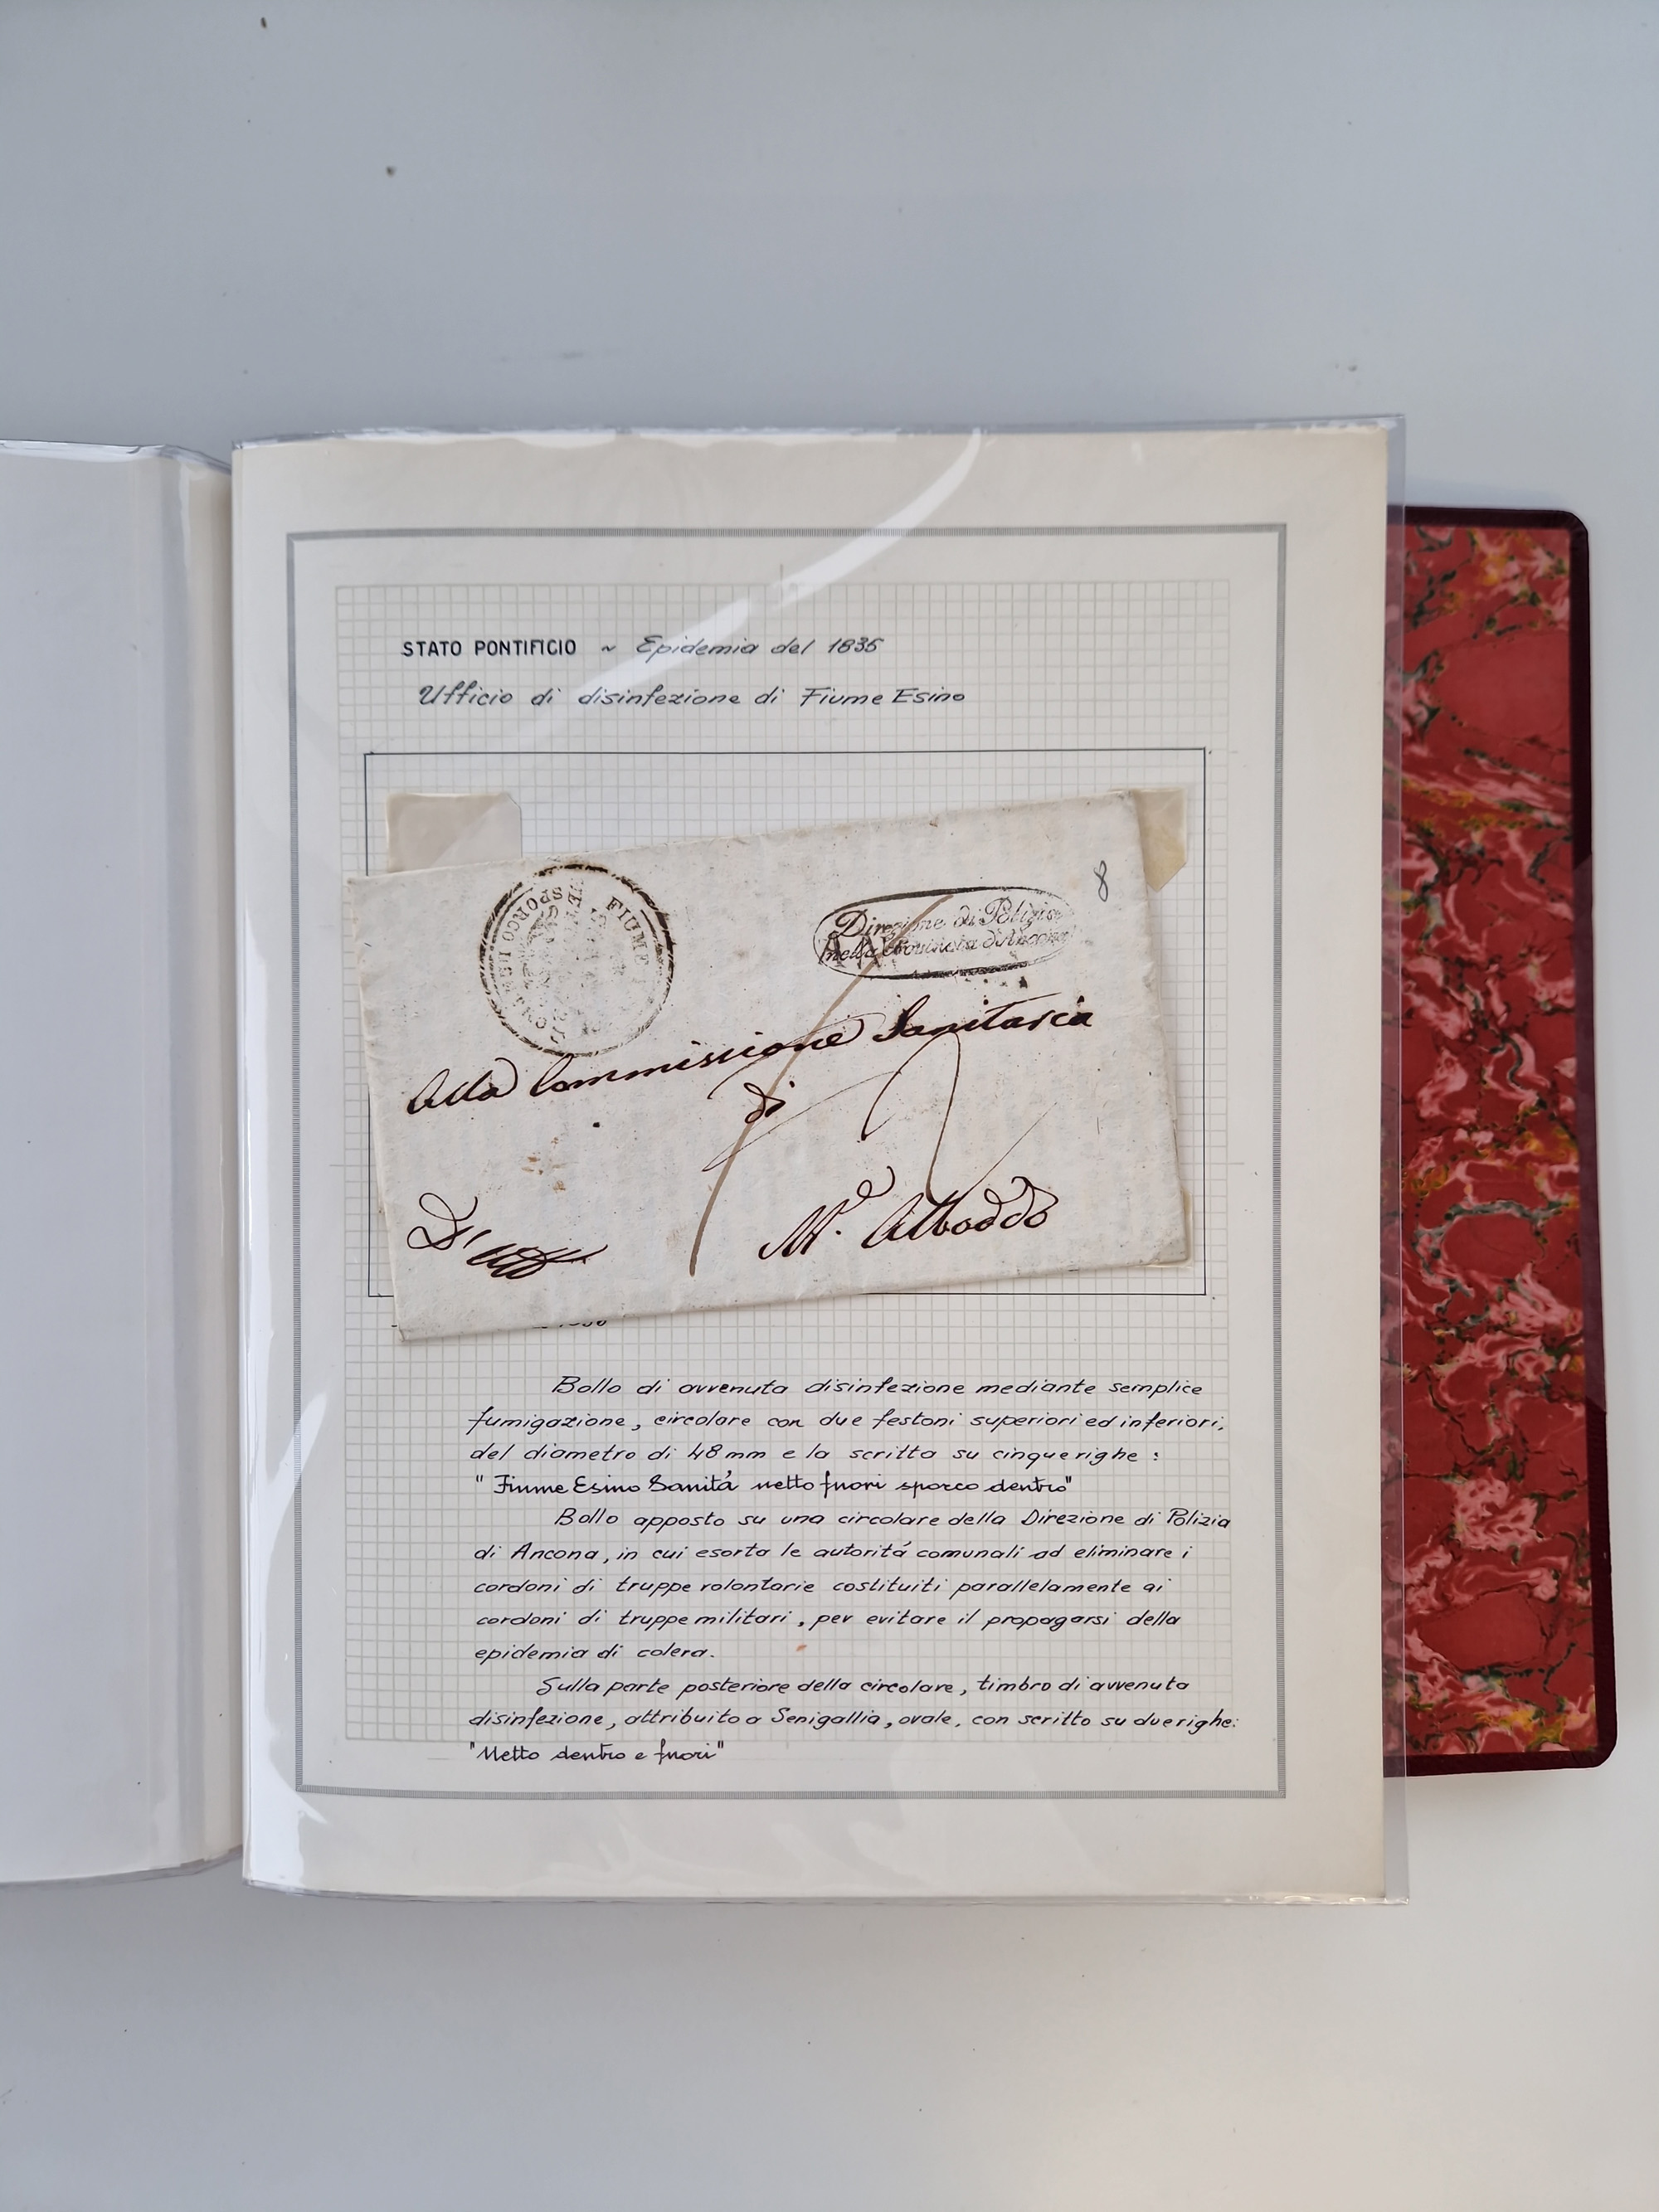 STATO PONTIFICIO ~ Epidemia del 1836
Ufficio di disinfezione di Fiume Esino
8
FIUME
NETTO
SPORCO
Direzione di Polizia
nella Provincia d'Ancona
Alla Commissione Sanitaria
di
M.e Alboddo
D'Uff
1836
Bollo di avvenuta disinfezione mediante semplice
fumigazione, circolare con due festoni superiori ed inferiori,
del diametro di 48 mm e la scritta su cinque righe :
" Fiume Esino Sanitá netto fuori sporco dentro"
Bollo apposto su una circolare della Direzione di Polizia
di Ancona, in cui esorta le autoritá comunali ad eliminare i
cordoni di truppe volontarie costituiti parallelamente ai
cordoni di truppe militari, per evitare il propagarsi della
epidemia di colera.
Sulla parte posteriore della circolare, timbro di avvenuta
disinfezione, attribuito a Senigallia, ovale, con scritto su due righe:
"Netto dentro e fuori"